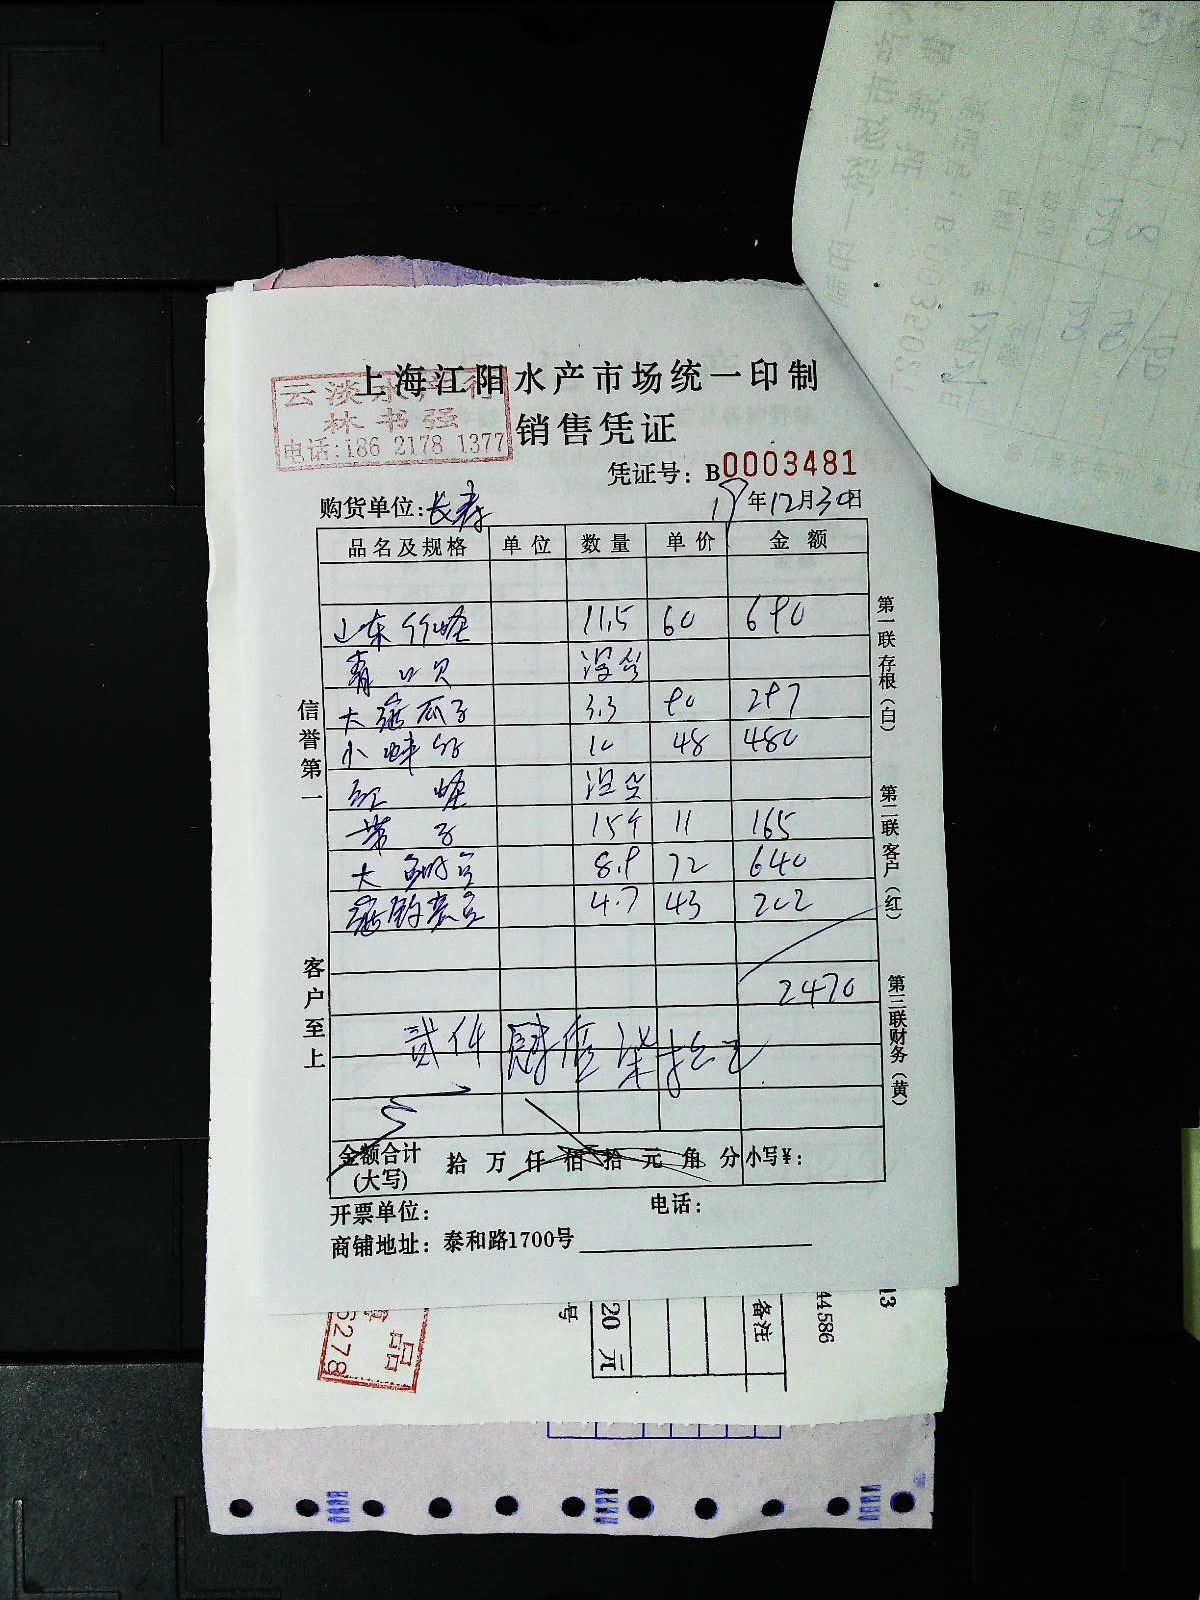 上海江阳水产市场统一印制
云淡水产行
林书强
电话:186 2178 1377
销售凭证
凭证号：B0003481
购货单位:长寿 19年12月30日
品名及规格 单位 数量 单价 金额
山东竹蛏 11.5 60 690
青口贝 没货
大 瓜子 3.3 90 297
小 10 48 480
红 蛏 没货
带 子 15个 11 165
大 8.9 72 640
4.7 43 202
2470
贰仟肆佰柒拾元
金额合计(大写) 拾 万 仟 佰 拾 元 角 分 小写¥:
开票单位: 电话:
商铺地址: 泰和路1700号
信誉第一
客户至上
第一联 存根(白)
第二联 客户(红)
第三联 财务(黄)
号
20 元
备注
44586
13
品
6278